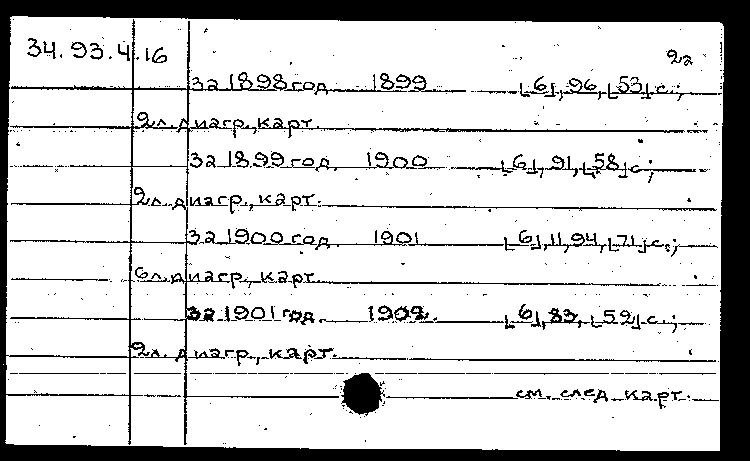 34.93.4.16
2а
За 1898 год. 1899 [6], 96, [53] с.;
2л. диагр., карт.
За 1899 год. 1900 [6], 91, [58] с;
2л. диагр., карт.
За 1900 год. 1901 [6], 11, 94, [71] с.;
6л. диагр., карт.
За 1901 год. 1902. [6], 83, [59] с.;
2л. диагр., карт.
см. след. карт.